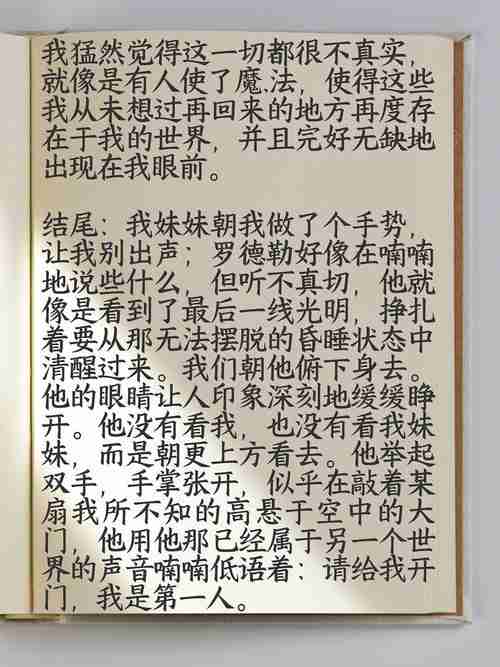 我猛然觉得这一切都很不真实，
就像是有人使了魔法，使得这些
我从未想过再回来的地方再度存
在于我的世界，并且完好无缺地
出现在我眼前。
结尾：我妹妹朝我做了个手势，
让我别出声；罗德勒好像在喃喃
地说些什么，但听不真切，他就
像是看到了最后一线光明，挣扎
着要从那无法摆脱的昏睡状态中
清醒过来。我们朝他俯下身去。
他的眼睛让人印象深刻地缓缓睁
开。他没有看我，也没有看我妹
妹，而是朝更上方看去。他举起
双手，手掌张开，似乎在敲着某
扇我所不知的高悬于空中的大
门，他用他那已经属于另一个世
界的声音喃喃低语着：请给我开
门，我是第一人。